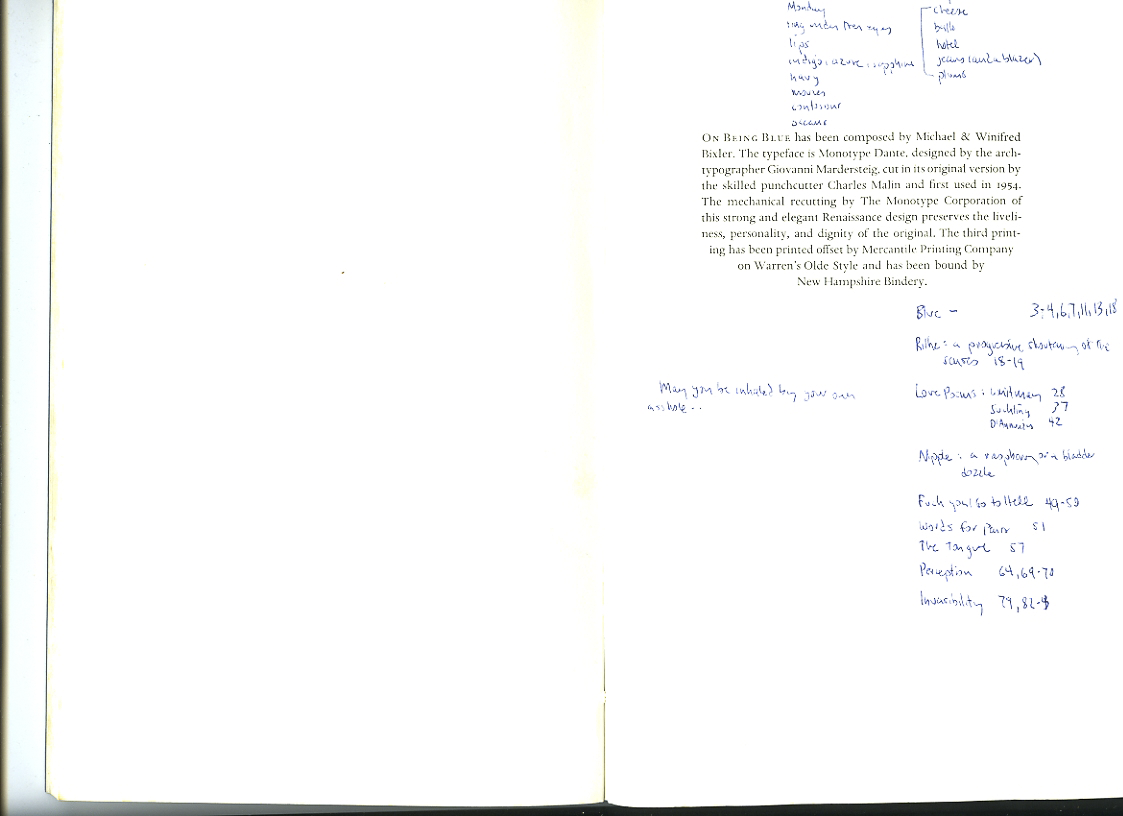 Monday
ring under the eyes
lips
indigo, azure, sapphire
navy
movies
contour
oceans
cheese
balls
hotel
jeans (and a blazer)
plums
ON BEING BLUE has been composed by Michael & Winifred
Bixler. The typeface is Monotype Dante, designed by the arch-
typographer Giovanni Mardersteig, cut in its original version by
the skilled punchcutter Charles Malin and first used in 1954.
The mechanical recutting by The Monotype Corporation of
this strong and elegant Renaissance design preserves the liveli-
ness, personality, and dignity of the original. The third print-
ing has been printed offset by Mercantile Printing Company
on Warren's Olde Style and has been bound by
New Hampshire Bindery.
Blue – 3-4,6,7,11,13,18
Rilke: a progressive of the
senses 18-19
May you be inhaled by your own
asshole..
Love Poems: Whitman 28
Suckling 37
D'Annunzio 42
Nipple: a raspberry or a bladder
Fuck you/Go to Hell 49-50
Words for Pain 51
The Tongue 57
Perception 64,69-70
Invisibility 79,82-